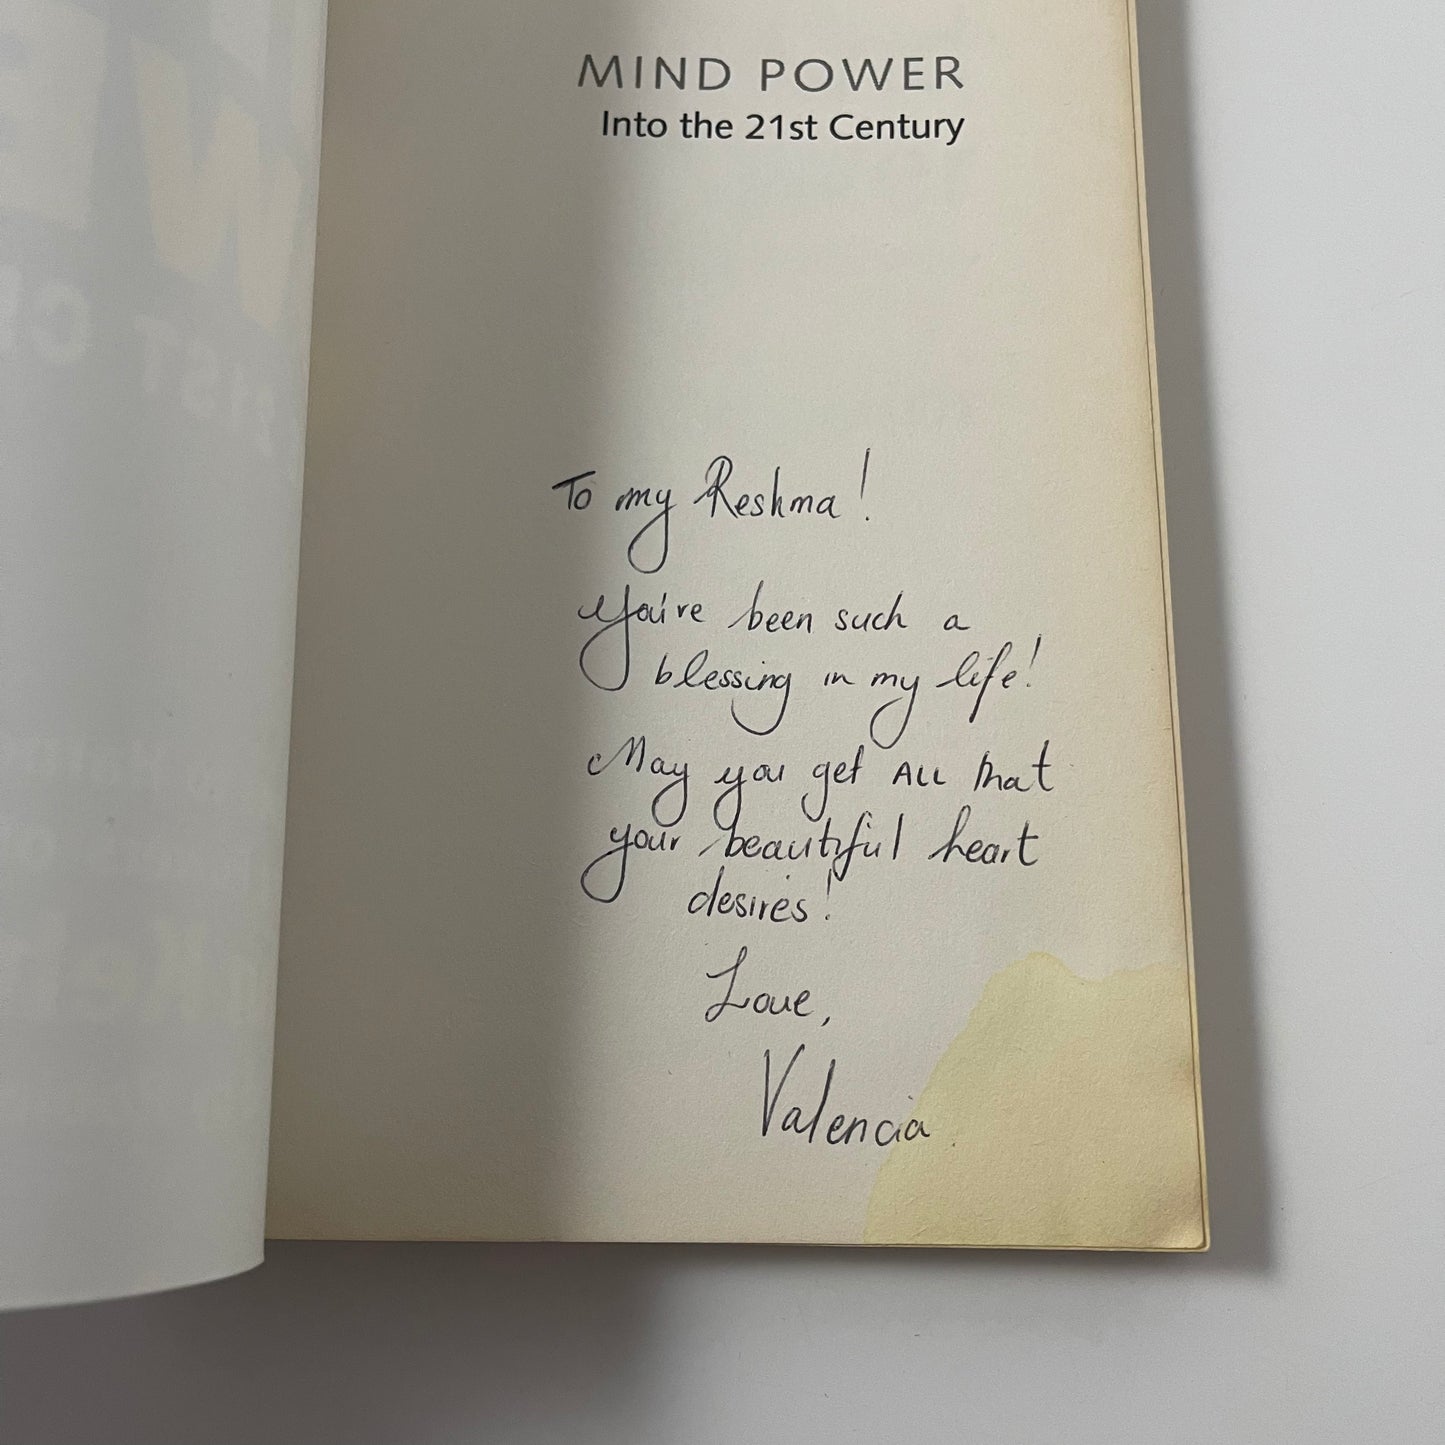 MIND POWER
Into the 21st Century
To my Reshma!
You've been such a
blessing in my life!
May you get ALL that
your beautiful heart
desires!
Love,
Valencia